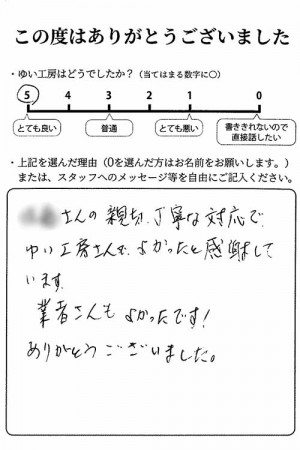 この度はありがとうございました
・ゆい工房はどうでしたか？（当てはまる数字に○）
5 4 3 2 1 0
とても良い 普通 とても悪い 書ききれないので直接話したい
・上記を選んだ理由（0を選んだ方はお名前をお願いします。）
または、スタッフへのメッセージ等を自由にご記入ください。
さんの親切、丁寧な対応で
ゆい工房さんで、よかったと感謝して
います。
業者さんもよかったです！
ありがとうございました。